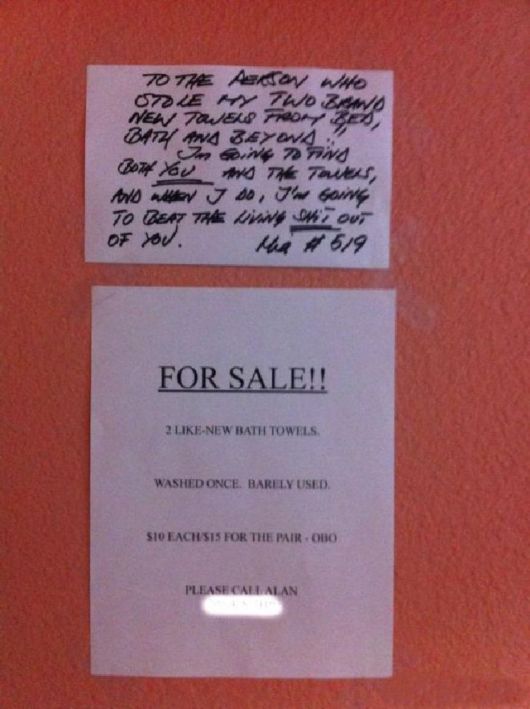 TO THE PERSON WHO
STOLE MY TWO BRAND
NEW TOWELS FROM BED,
BATH AND BEYOND!!,
I'm GOING TO FIND
BOTH YOU AND THE TOWELS,
AND WHEN I DO, I'm GOING
TO BEAT THE LIVING SHiT OUT
OF YOU. # 519
FOR SALE!!
2 LIKE-NEW BATH TOWELS.
WASHED ONCE. BARELY USED.
$10 EACH/$15 FOR THE PAIR - OBO
PLEASE CALL ALAN